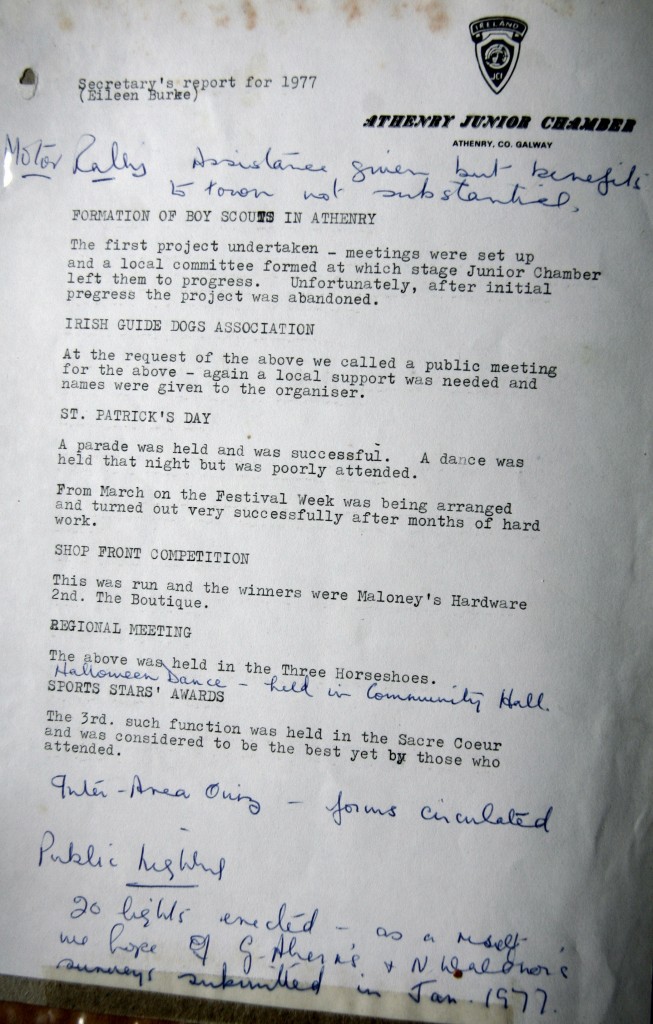 IRELAND
JCI
Secretary's report for 1977
(Eileen Burke)
ATHENRY JUNIOR CHAMBER
ATHENRY, CO. GALWAY
Motor Rally Assistance given but benefits
to town not substantial,
FORMATION OF BOY SCOUTS IN ATHENRY
The first project undertaken - meetings were set up
and a local committee formed at which stage Junior Chamber
left them to progress. Unfortunately, after initial
progress the project was abandoned.
IRISH GUIDE DOGS ASSOCIATION
At the request of the above we called a public meeting
for the above - again a local support was needed and
names were given to the organiser.
ST. PATRICK'S DAY
A parade was held and was successful. A dance was
held that night but was poorly attended.
From March on the Festival Week was being arranged
and turned out very successfully after months of hard
work.
SHOP FRONT COMPETITION
This was run and the winners were Maloney's Hardware
2nd. The Boutique.
REGIONAL MEETING
The above was held in the Three Horseshoes.
Halloween Dance - held in Community Hall.
SPORTS STARS' AWARDS
The 3rd. such function was held in the Sacre Coeur
and was considered to be the best yet by those who
attended.
Inter-Area Quiz - forms circulated
Public Lighting
20 lights erected - as a result
we hope of G. Aherne's + N. Waldron's
surveys submitted in Jan. 1977.